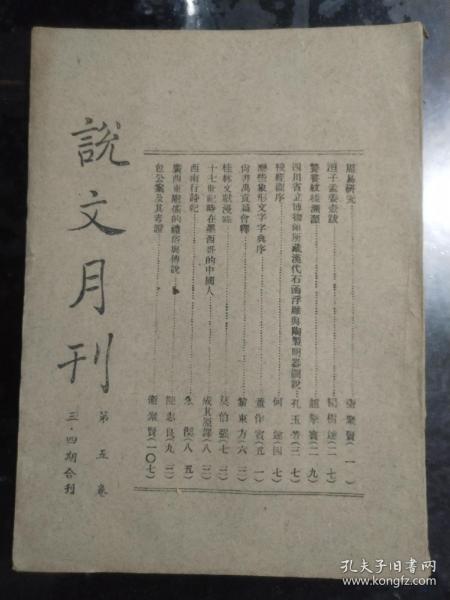 周易研究…………衛聚賢(一)
洹子孟姜壺跋…………楊樹達(二七)
饕餮紋樣溯源…………(二九)
四川省立博物館所藏漢代石函浮雕與陶製明器圖說…孔玉芳(三七)
序…………何(四七)
麼些象形文字字典序…………董作賓(五一)
尚書禹貢篇會釋…………黎東方(六三)
桂林文獻漫談…………莫伯強(七三)
十七世紀時在墨西哥的中國人…………成其原譯(八三)
西南行詩紀…………(八五)
廣西東蘭傜的禮俗與傳說…………陳志良(九三)
包公案及其考證…………衛聚賢(一〇七)
說文月刊
第五卷
三·四期合刊
孔夫子旧书网
www.kongfz.com